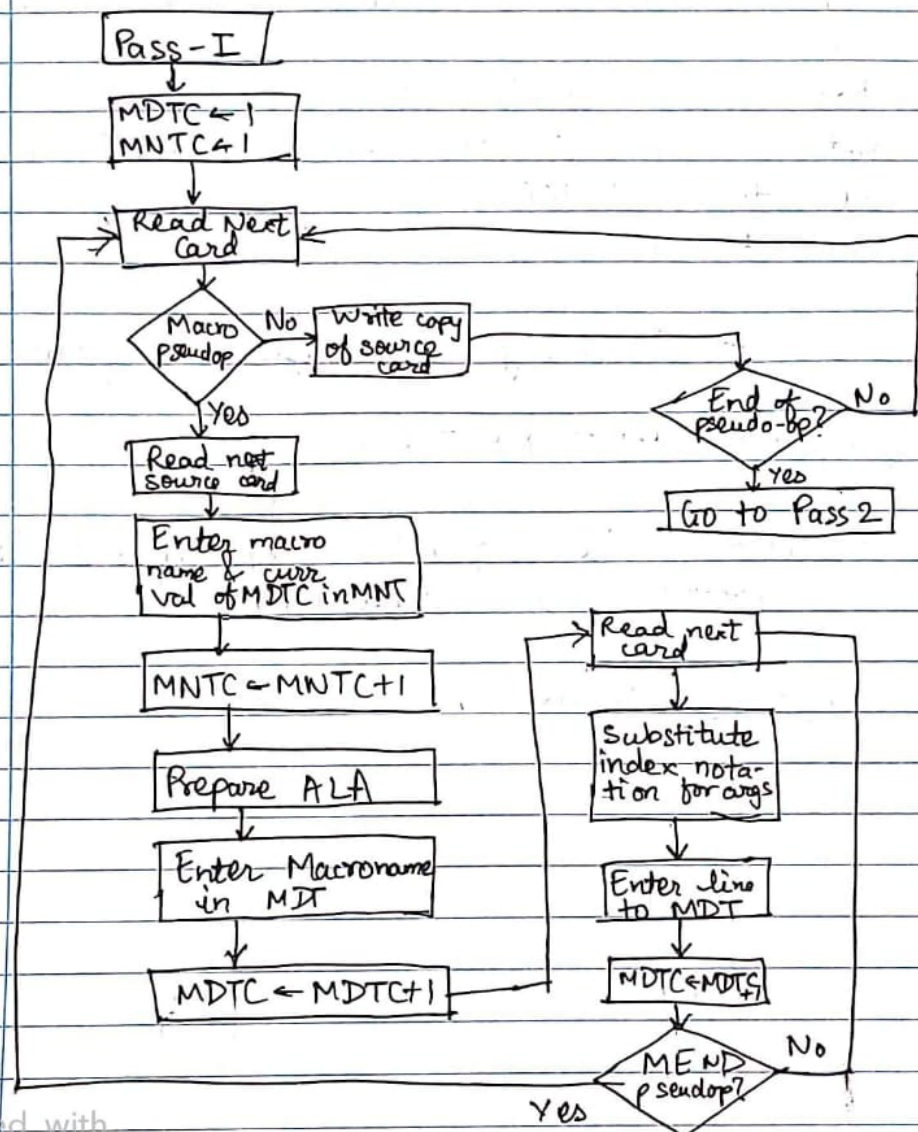 Pass-I
MDTC ← 1
MNTC ← 1
Read Next
Card
Macro
pseudop
No
Write copy
of source
card
End of
pseudo-op?
No
Yes
Go to Pass 2
Yes
Read next
source card
Enter macro
name & curr
val of MDTC in MNT
MNTC ← MNTC+1
Prepare ALA
Enter Macroname
in MDT
MDTC ← MDTC+1
Read next
card
Substitute
index nota-
tion for args
Enter line
to MDT
MDTC ← MDTC
+1
MEND
pseudop?
No
Yes
with